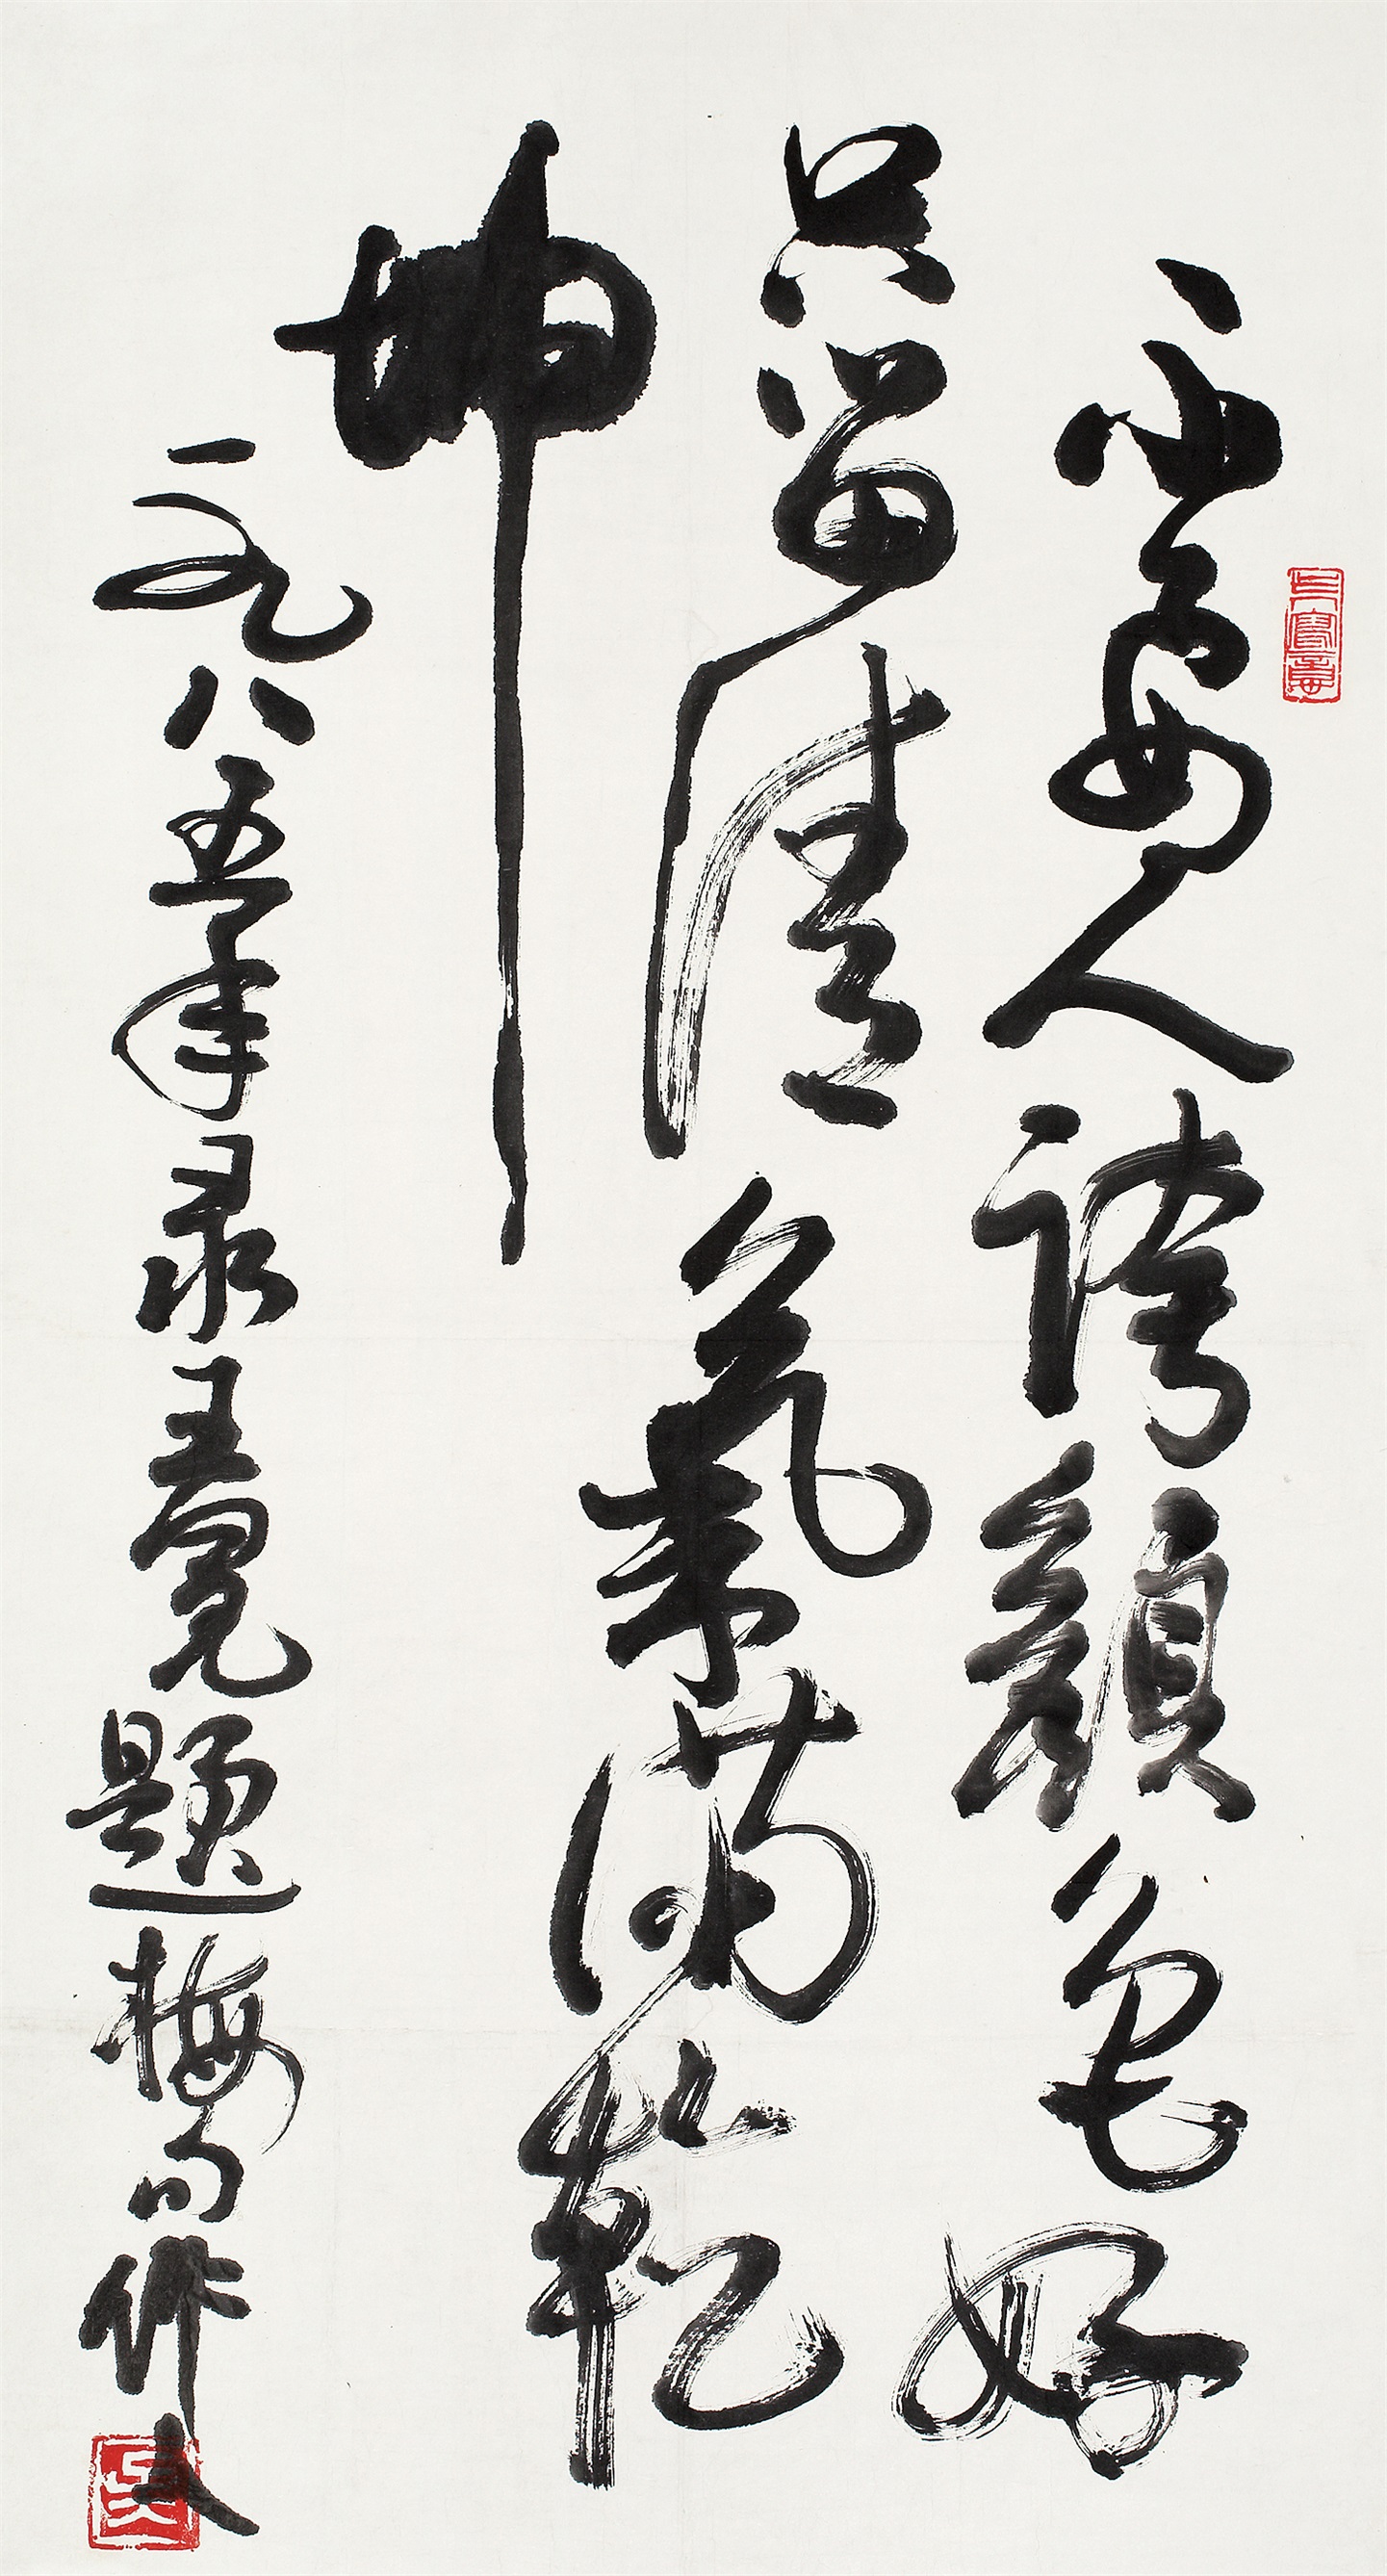 不要人誇顔色好
只留清氣滿乾
坤
一九八五年录王冕题梅句作人